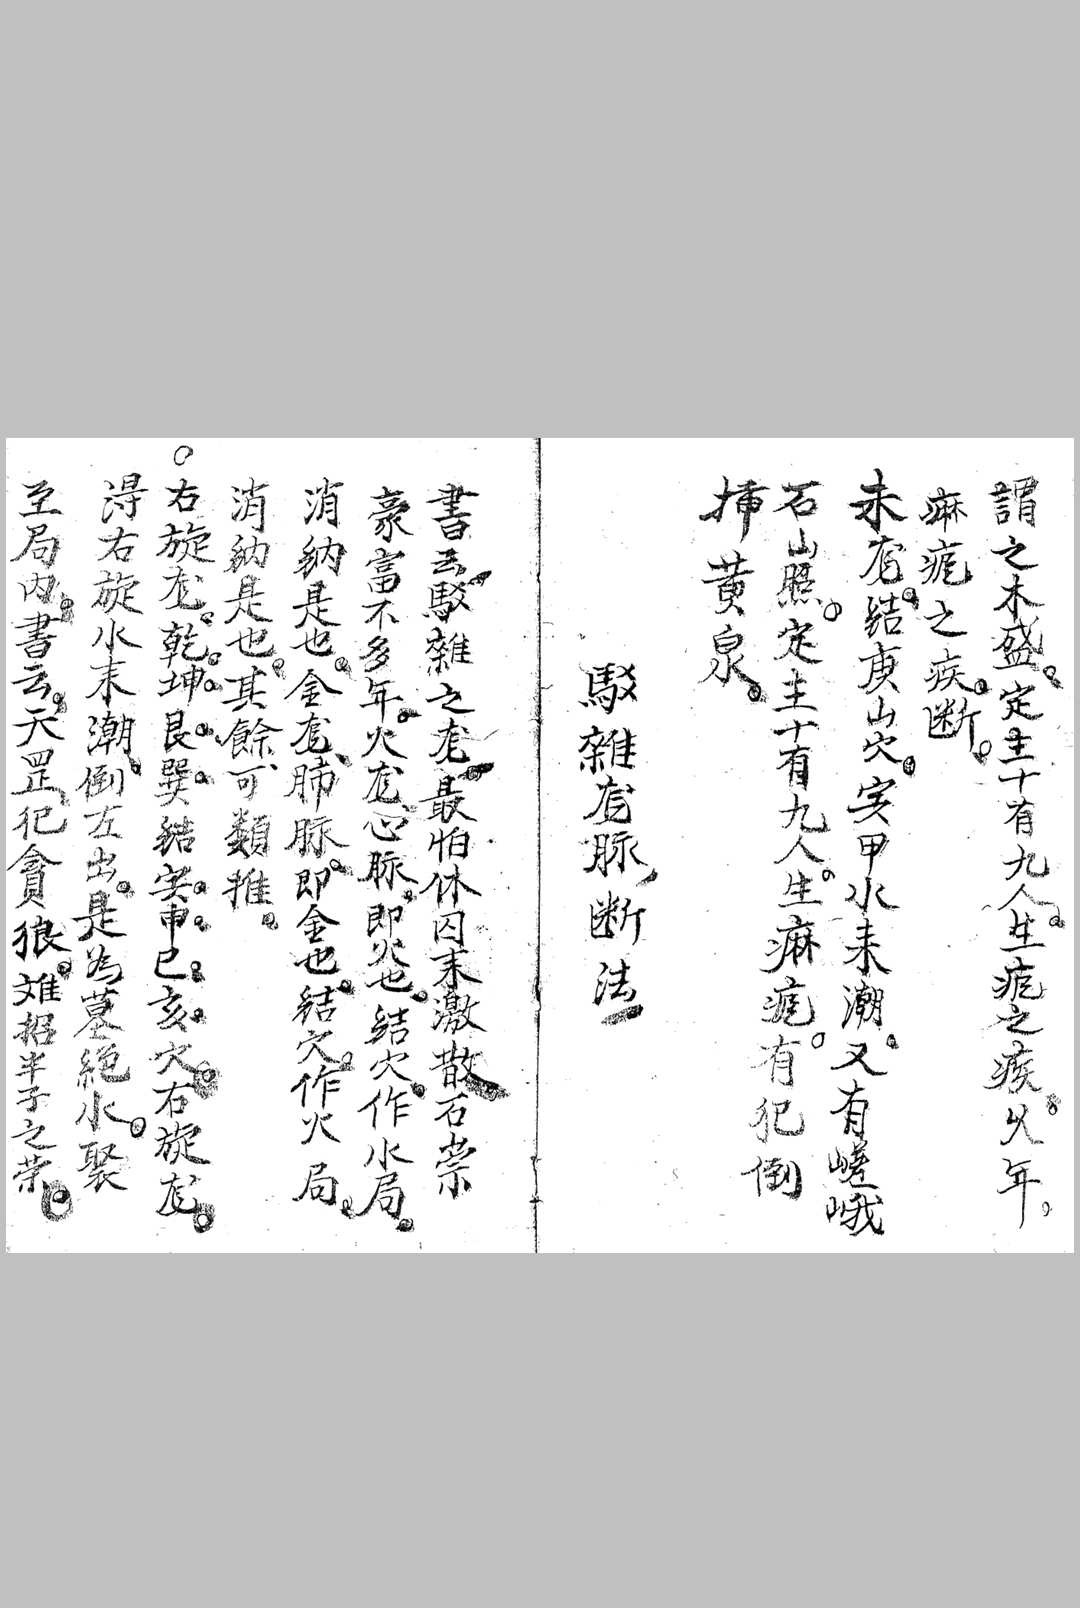 謂之木盛。定主十有九人。生疕之疾。久年。
痳疕之疾。断。
未尨。結庚山穴。実甲水耒潮。又有嵯峨
石山照。定主十有九人。生痳疕。有犯倒
挿黄泉。
駁雜尨脉断法
書云駁雜之尨。最怕休囚耒激散石祟
豪富不多年。火尨心脉。即火也。結穴。作水局。
消納是也。金尨、肺脉。即金也。結穴。作火局。
消納是也。其餘可類推。
○右旋尨。乾。坤。艮。巽。結実。申。巳。亥。穴。右旋尨。
淂右旋水耒潮。倒左出。是為墓絕水。聚
至局內。書云。天罡犯貪狼。难招半子之荣。